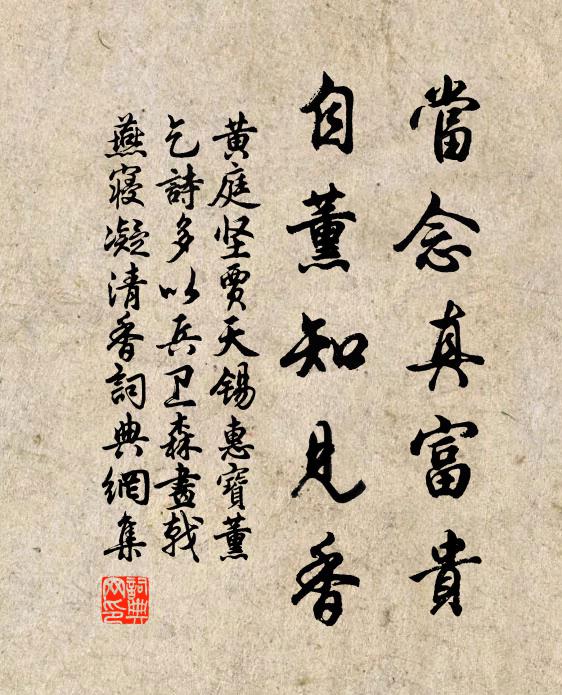 當念真富貴
自薰知見香
黄庭坚賈天錫惠寶薰
乞詩多以兵卫森畫戟
燕寝凝清香詞典網集
詞典
网印